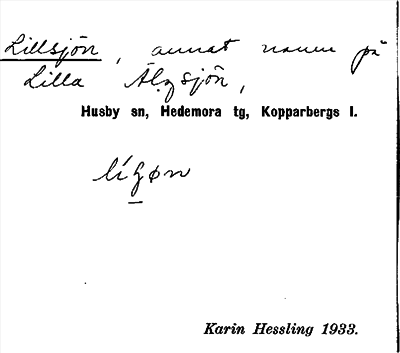 Lillsjön, annat namn på
Lilla Älgsjön,
Husby sn, Hedemora tg, Kopparbergs l.
Karin Hessling 1933.